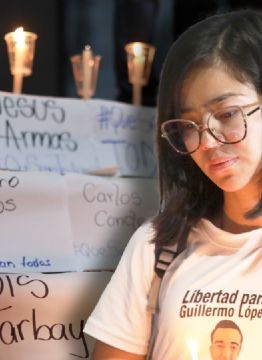 Jesus
Armas
#QueS
TOD
Carlos
Cond
#Ques
an todos
Tarbay
Libertad para
Guillermo López